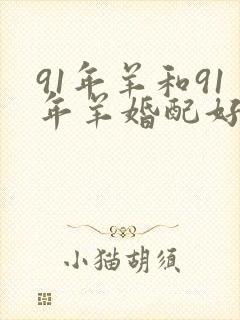 91年羊和91
年羊婚配好
小猫胡须